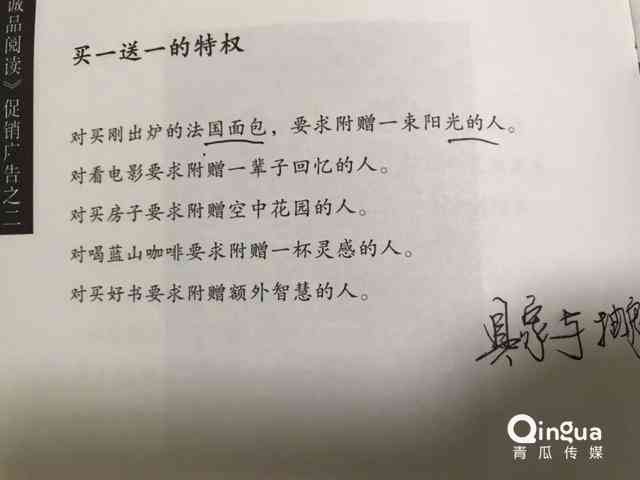 诚品阅读》促销广告之二
买一送一的特权
对买刚出炉的法国面包，要求附赠一束阳光的人。
对看电影要求附赠一辈子回忆的人。
对买房子要求附赠空中花园的人。
对喝蓝山咖啡要求附赠一杯灵感的人。
对买好书要求附赠额外智慧的人。
具象与抽
Qingua
青瓜传媒